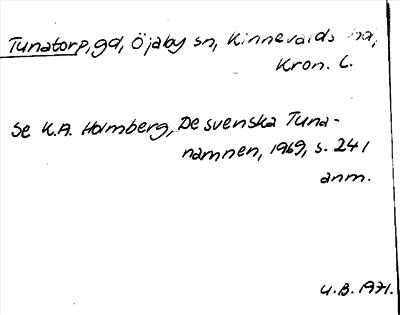 Tunatorp, gd, Öjaby sn, Kinnevalds hd,
Kron. L.
Se K.A. Holmberg, De svenska Tuna-
namnen, 1969, s. 241
anm.
U.B. 1971.